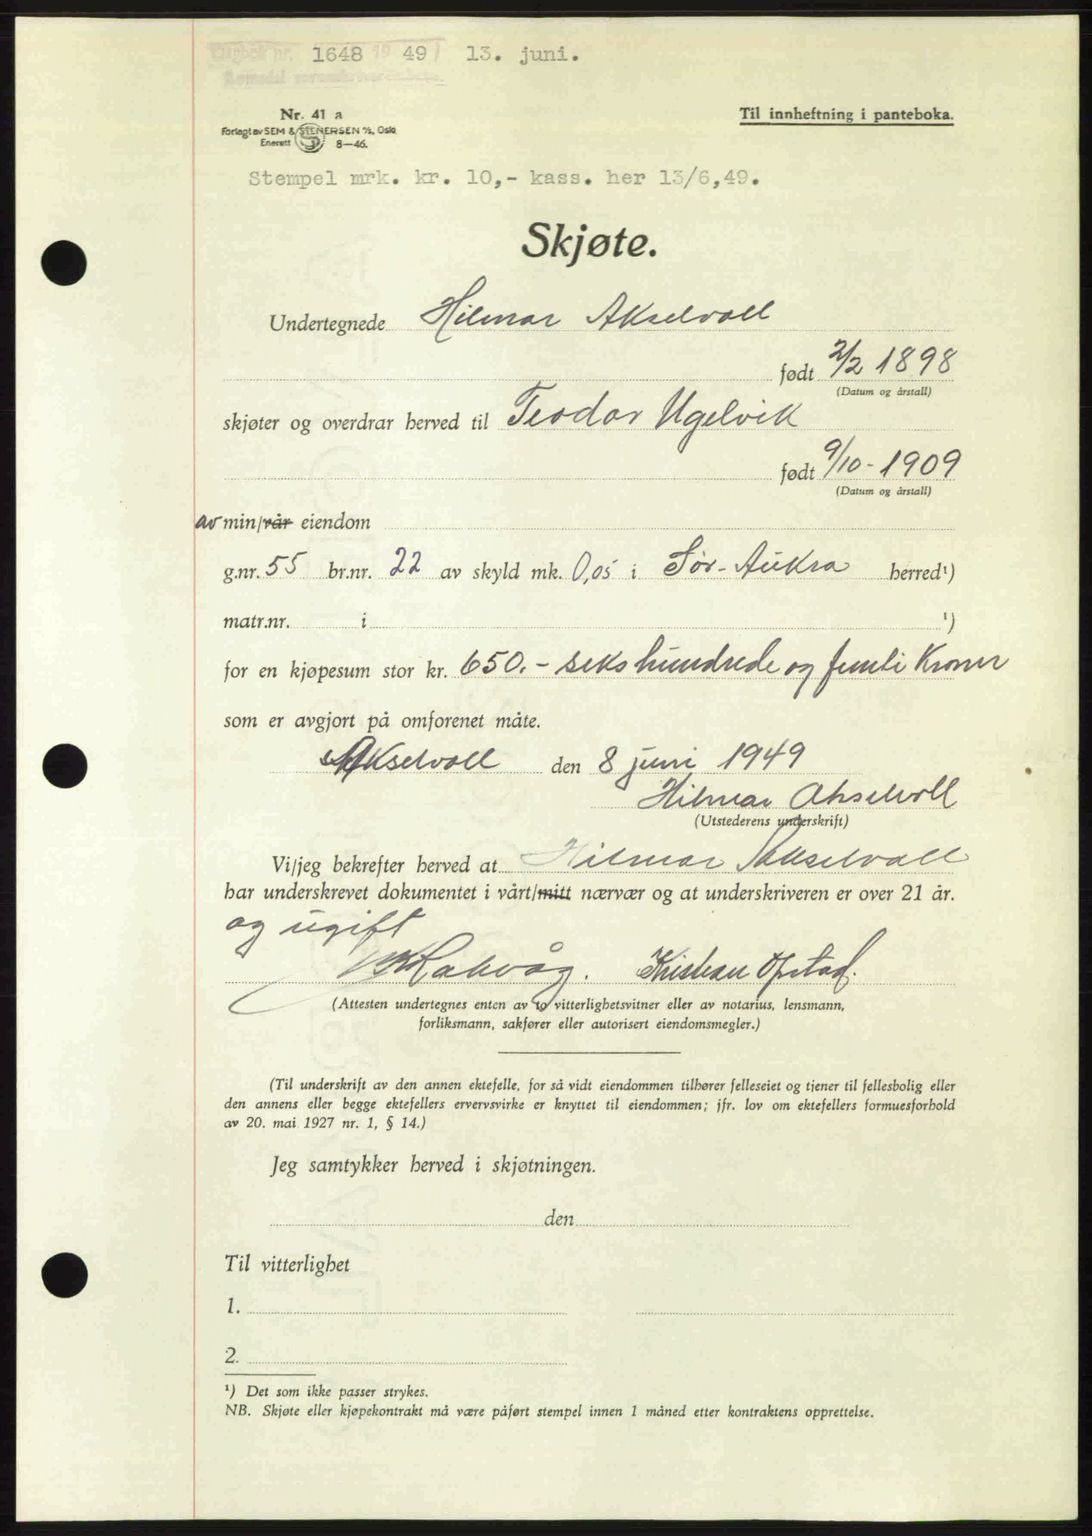 Dagbok nr. 1648 1949 13. juni.
Romsdal sorenskriverembete
Nr. 41 a
Forlagt av SEM & STENERSEN A/S, Oslo
Enerett 8—46.
Til innheftning i panteboka.
Stempel mrk. kr. 10,- kass. her 13/6,49.
Skjøte.
Undertegnede Hilmar Akselvoll
født 2/2 1898
(Datum og årstall)
skjøter og overdrar herved til Teodor Ugelvik
født 9/10-1909
(Datum og årstall)
av min/vår eiendom
g.nr. 55 br.nr. 22 av skyld mk. 0,05 i Sør-Aukra herred¹)
matr.nr. i ¹)
for en kjøpesum stor kr. 650.- sekshundrede og femti Kroner
som er avgjort på omforenet måte.
Akselvoll den 8 juni 1949
Hilmar Akselvoll
(Utstederens underskrift)
Vi/jeg bekrefter herved at Hilmar Akselvoll
har underskrevet dokumentet i vårt/mitt nærvær og at underskriveren er over 21 år.
og ugift
Kristian Opstad.
(Attesten undertegnes enten av to vitterlighetsvitner eller av notarius, lensmann,
forliksmann, sakfører eller autorisert eiendomsmegler.)
(Til underskrift av den annen ektefelle, for så vidt eiendommen tilhører felleseiet og tjener til fellesbolig eller
den annens eller begge ektefellers ervervsvirke er knyttet til eiendommen; jfr. lov om ektefellers formuesforhold
av 20. mai 1927 nr. 1, § 14.)
Jeg samtykker herved i skjøtningen.
den
Til vitterlighet
1.
2.
¹) Det som ikke passer strykes.
NB. Skjøte eller kjøpekontrakt må være påført stempel innen 1 måned etter kontraktens opprettelse.